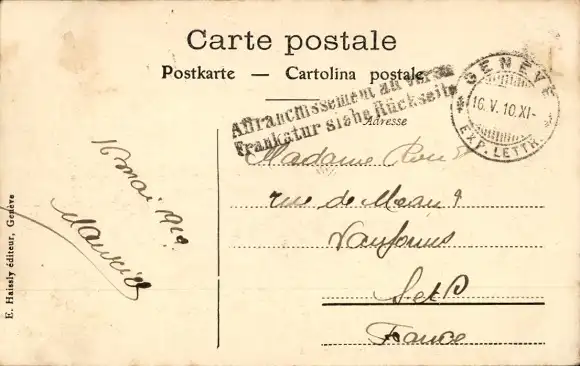 Carte postale
Postkarte — Cartolina postale
Affranchissement au verso
Frankatur siehe Rückseite
GENÈVE
16.V.10.XI-
EXP. LETTR.
Adresse
Madame
rue de Meaux 9
Vaujours
S et O
France
16 mai 1910
Maurice
E. Haissly éditeur, Genève